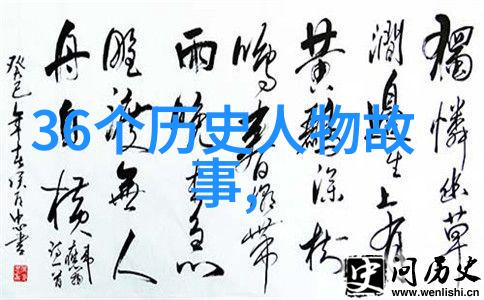 獨憐幽草
澗邊生上有
黃鸝深樹
鳴春潮帶
雨晚來急
野渡無人
舟自橫
韋應物詩
癸巳年
36个历史人物故
事,
史问历史
www.wenlishi.cn